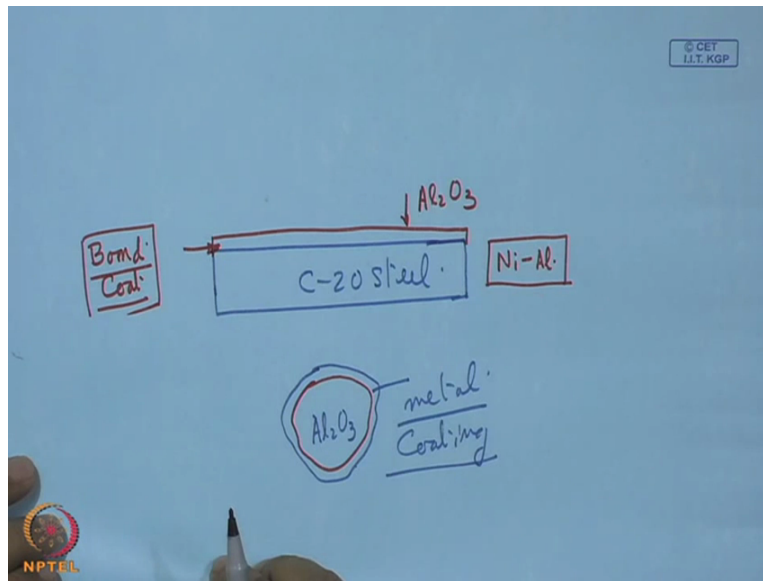 © CET
I.I.T. KGP
Al2O3
Bond
Coat
C-20 Steel.
Ni-Al.
Al2O3
metal.
Coating
NPTEL